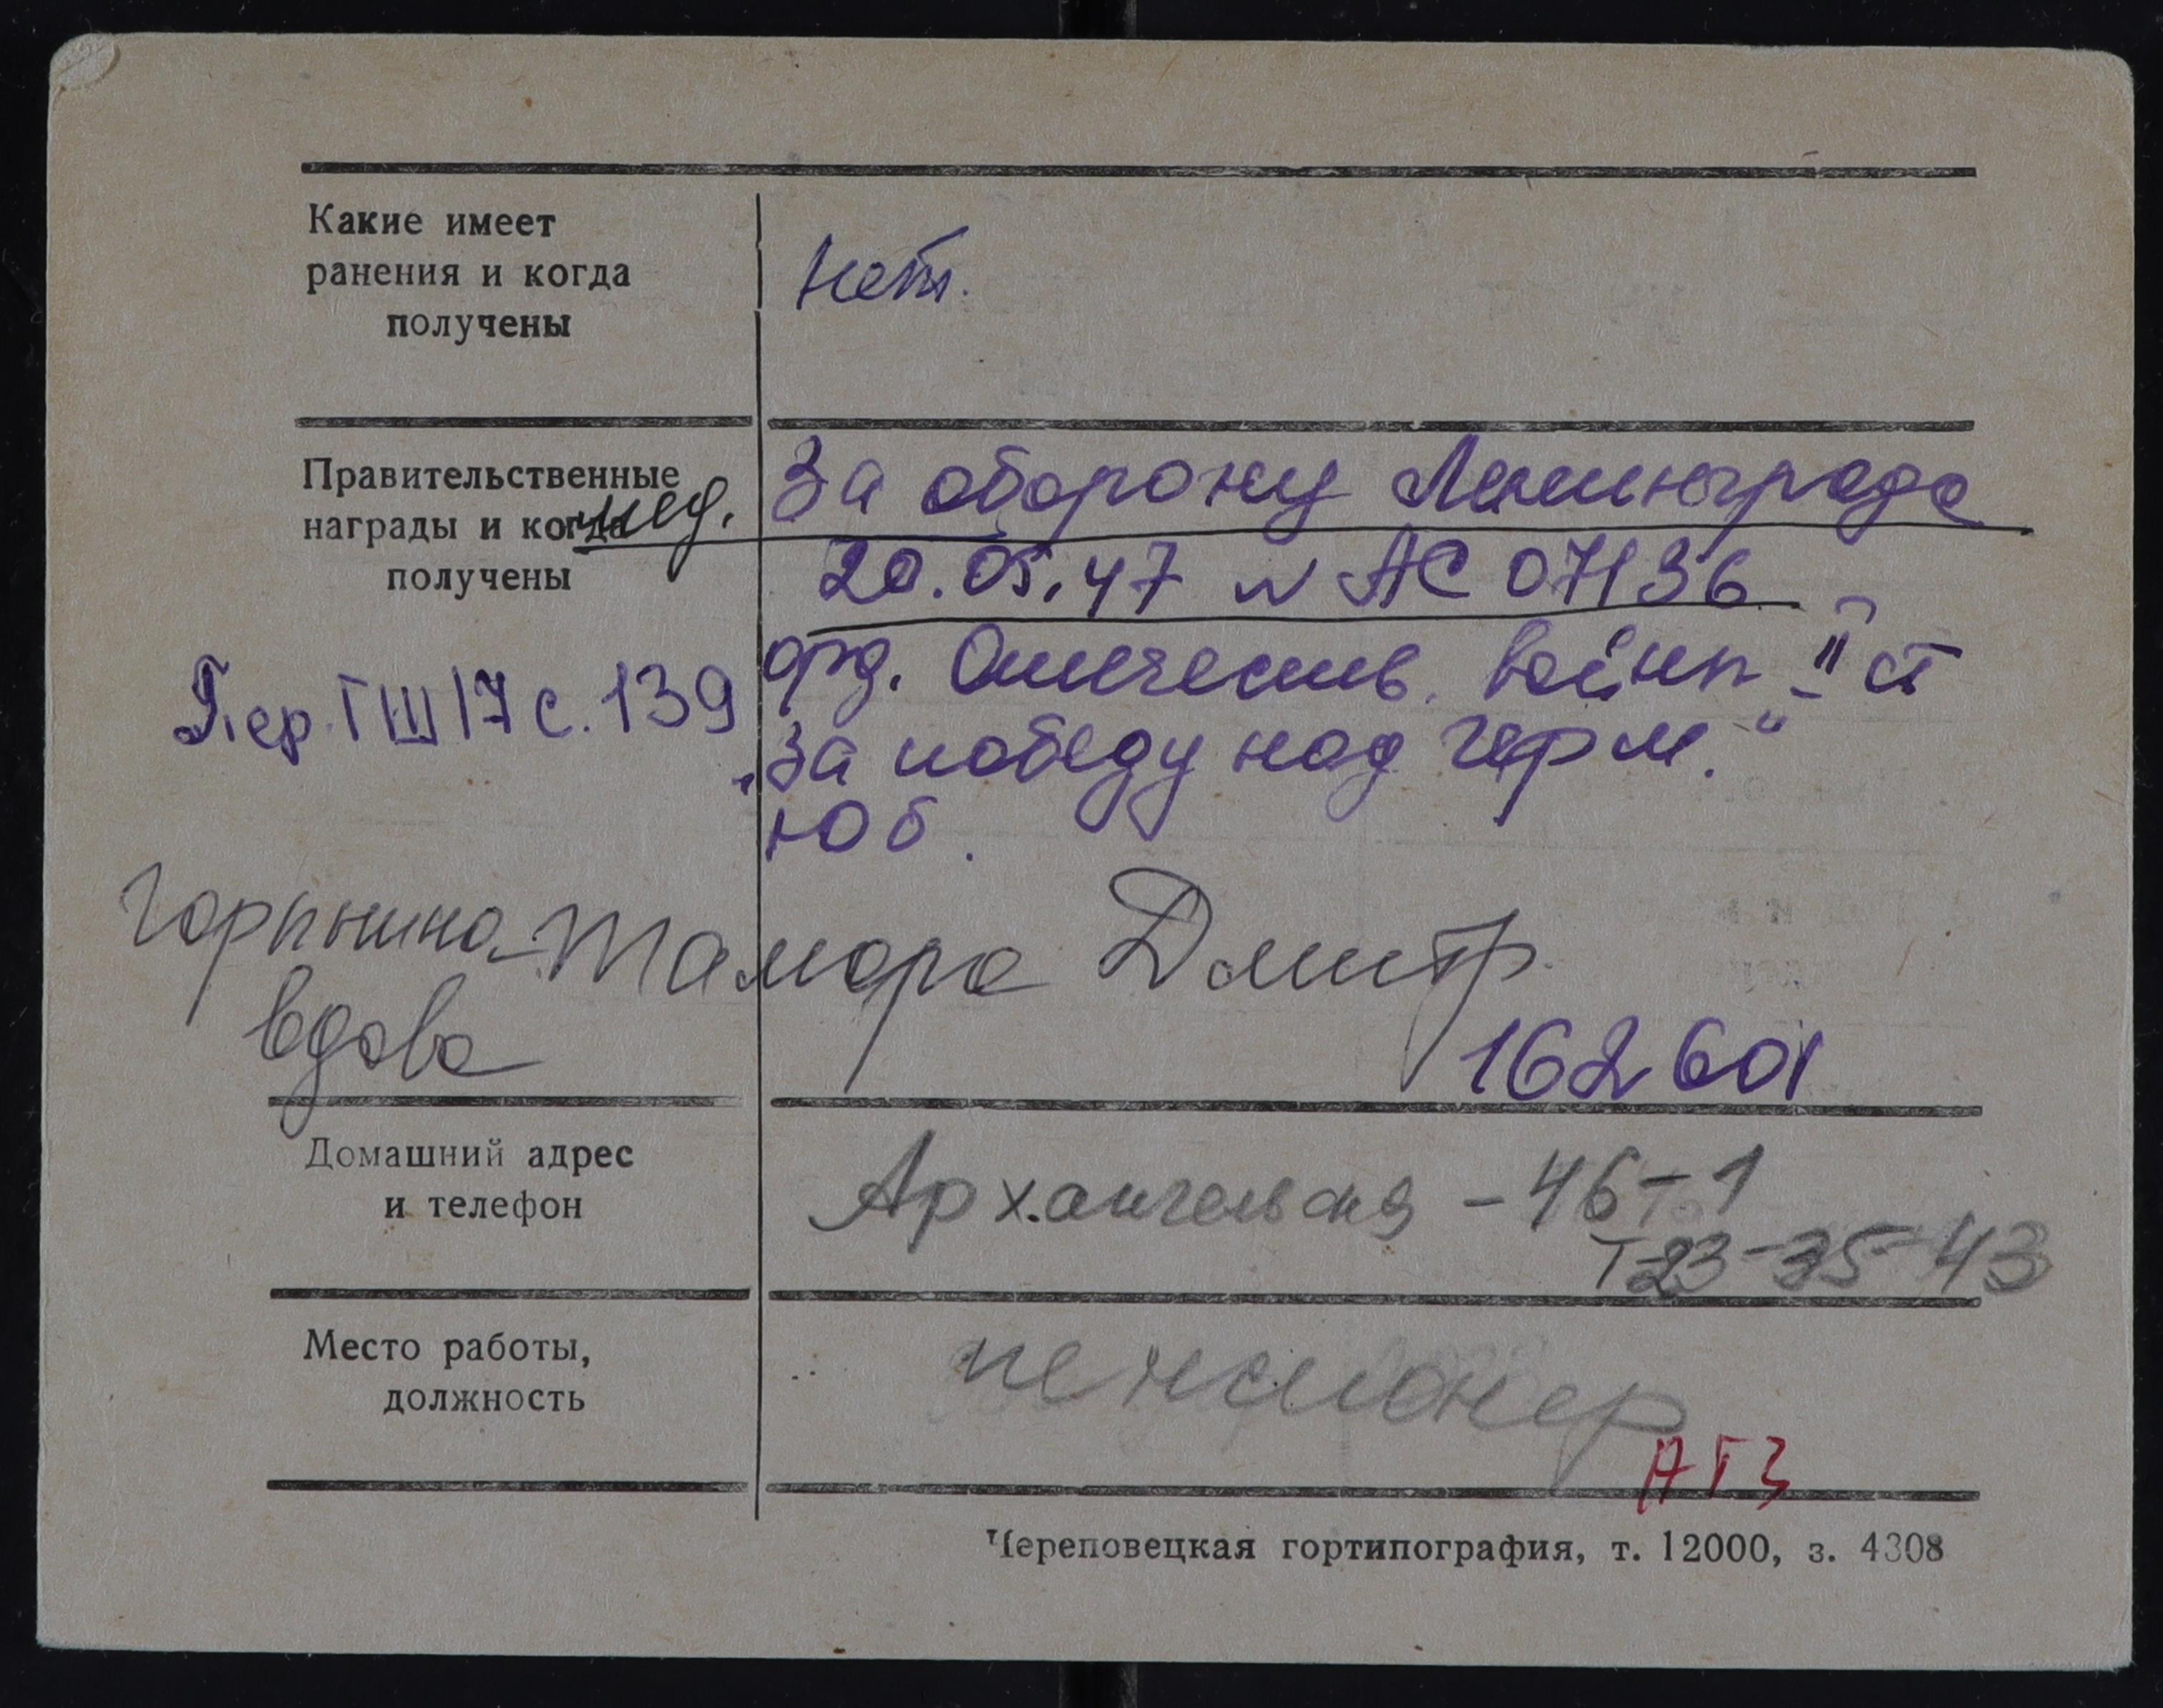 Какие имеет
ранения и когда
получены
нет.
Правительственные
награды и когда
получены
мед. За оборону Ленинграда
20.05.47 N АС 07136
орд. Отечеств. войны II ст
Пер. ГШ 17 с. 139
„За победу над Герм.“
Юб.
Горынина - Тамара Дмитр.
вдова
162601
Домашний адрес
и телефон
Архангельская - 46 - 1
Т 23-35-43
Место работы,
должность
пенсионер
АГЗ
Череповецкая гортипография, т. 12000, з. 4308